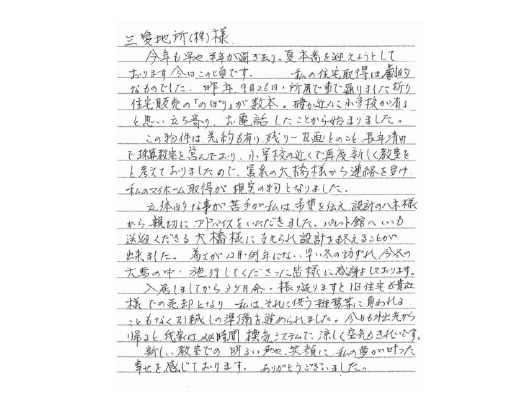 三愛地所(株)様
今年も早や半年が過ぎ去り、夏本番を迎えようとして
おります今日この頃です。 私の住宅取得は劇的
なものでした。昨年、9月26日・所用で車で通りました折り
住宅販売の「のぼり」が数本。確か近くに小学校が有る
と思い立ち寄り、お電話したことから始まりました。
この物件は先約も有り、残り一区画とのこと、長年清田
で珠算教室を営んでおり、小学校の近くで再度新しく教室を
と考えておりましたので、営業の大橋様から連絡を受け
私のマイホーム取得が現実の物となりました。
立体的な事が苦手な私は希望を伝え、設計の八木様
から親切にアドバイスをいただきました。パレット館へいつも
送迎くださる大橋様に支えられ設計を終えることが
出来ました。着工が12月・例年にない早い冬の訪ずれ、今冬の
大雪の中・施行してくださった皆様に感謝しております。
入居しましてから3ヶ月余・振り返りますと旧住宅が貴社
様での売却となり 私は、それに伴う雑事に負われる
こともなく引越しの準備を進められました。今日も外出先から
帰ると我家は24時間換気システムで涼しく空気もきれいです。
新しい教室での明るい声や、笑顔に 私の夢が叶った
幸せを感じております。 ありがとうございました。